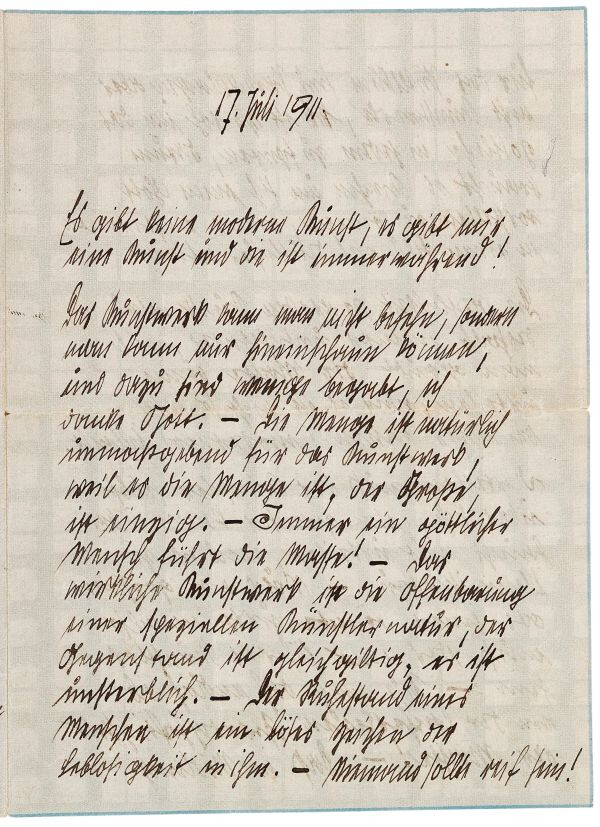 17. Juli 1911.
Es gibt keine moderne Kunst, es gibt nur
eine Kunst und die ist immerwährend!
Das Kunstwerk kann man nicht besehn, sondern
man kann nur hineinschaun können,
und dazu sind wenige begabt, ich
danke Gott. — Die Menge ist natürlich
unmaßgebend für das Kunstwerk,
weil es die Menge ist, der Große,
ist einzig. — Immer ein göttlicher
Mensch führt die Masse! — Das
wirkliche Kunstwerk ist die Offenbarung
einer speziellen Künstlernatur, der
Gegenstand ist gleichgiltig, er ist
unsterblich. — Der Ruhestand eines
Menschen ist ein böses Zeichen der
Leblosigkeit in ihm. — Niemand sollte reif sein!